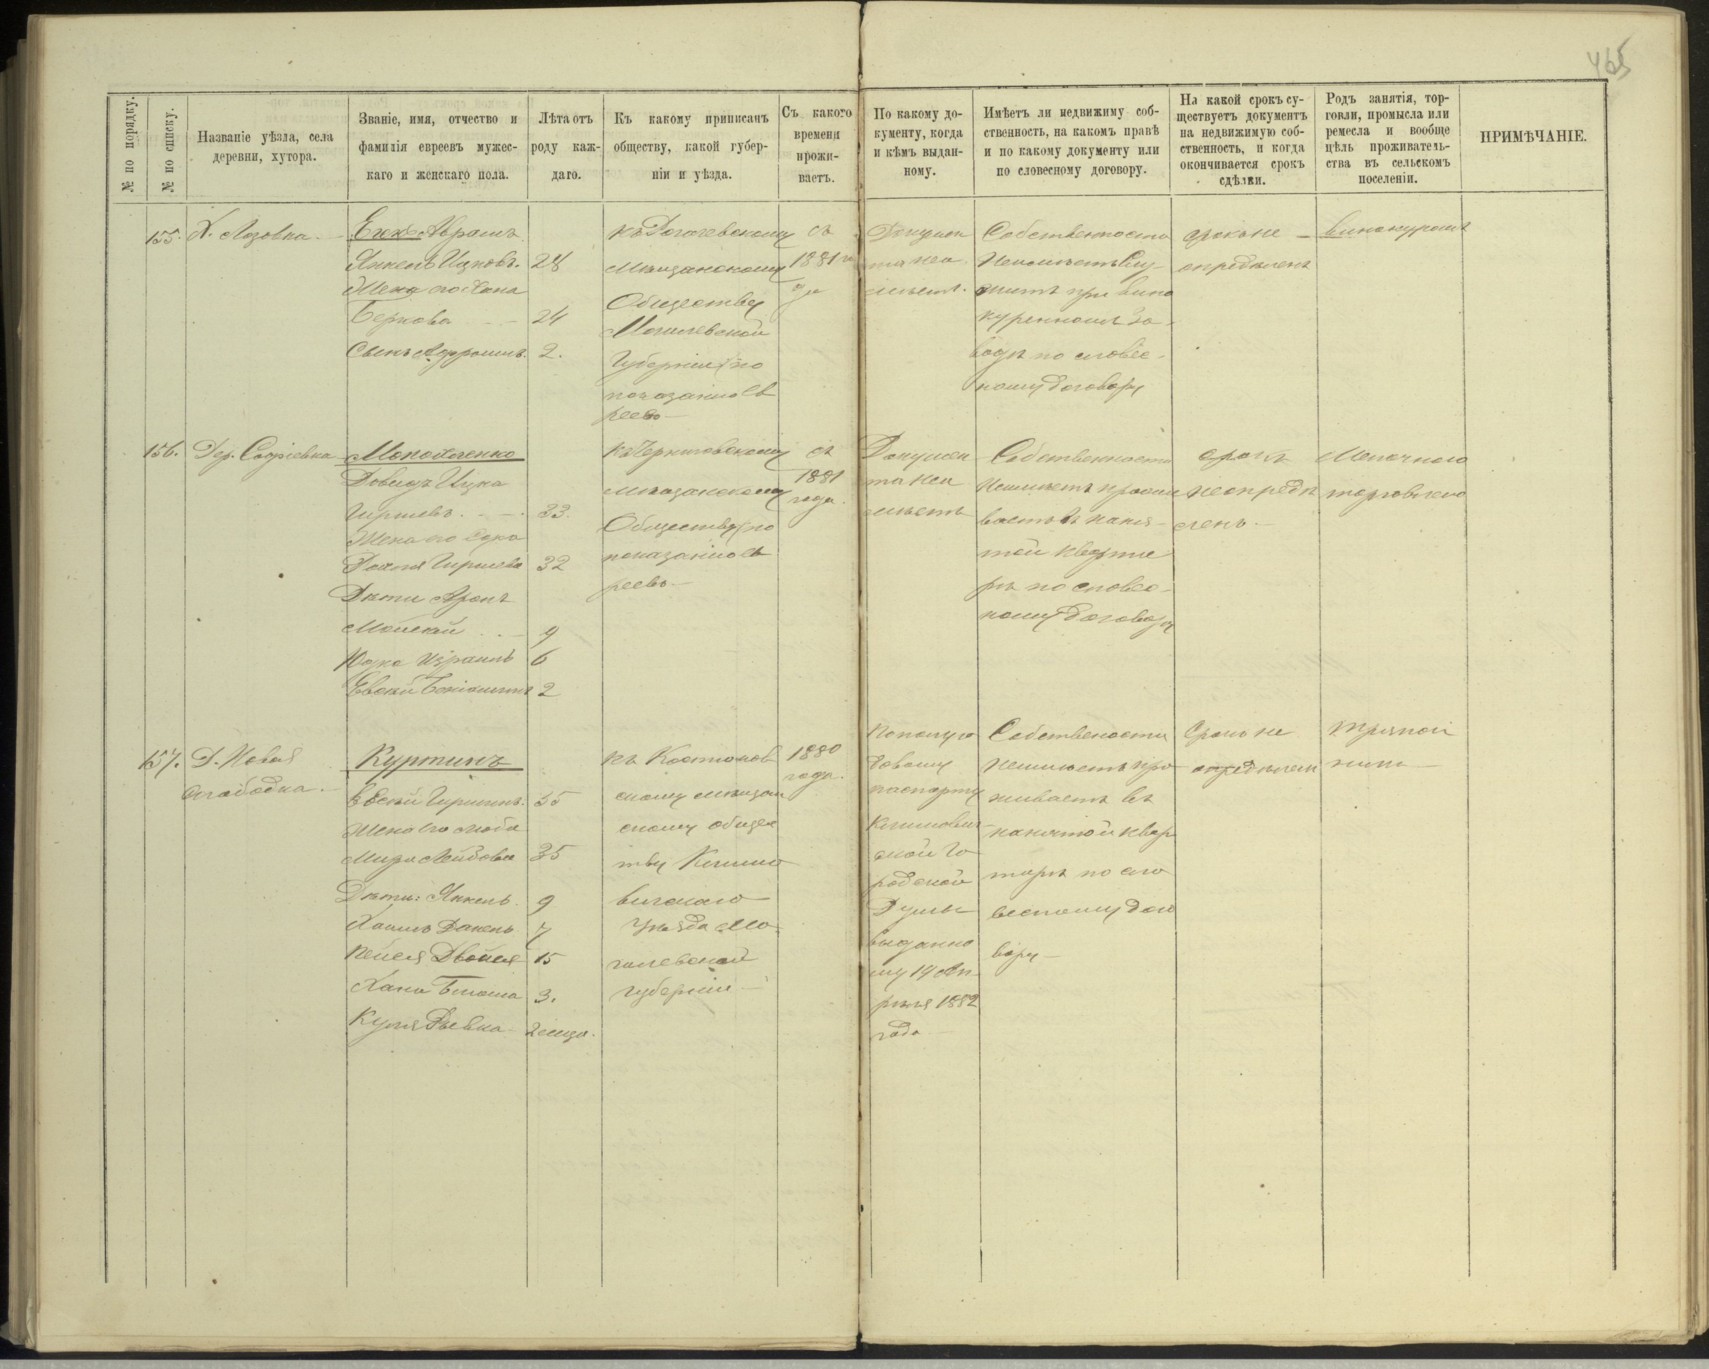 465
№ по порядку.
№ по списку.
Названіе уѣзда, села
деревни, хутора.
Званіе, имя, отчество и
фамилія евреевъ мужес-
каго и женскаго пола.
Лѣта отъ
роду каж-
даго.
Къ какому приписанъ
обществу, какой губер-
ніи и уѣзда.
Съ какого
времени
прожи-
ваетъ.
По какому до-
кументу, когда
и кѣмъ выдан-
ному.
Имѣетъ ли недвижиму соб-
ственность, на какомъ правѣ
и по какому документу или
по словесному договору.
На какой срокъ су-
ществуетъ документъ
на недвижимую соб-
ственность, и когда
окончивается срокъ
сдѣлки.
Родъ занятія, тор-
говли, промысла или
ремесла и вообще
цѣль проживатель-
ства въ сельскомъ
поселеніи.
ПРИМѢЧАНІЕ.
155.
Х. Лозовка.
Абрамъ
Янкель Ицковъ. 28
Жена его Хана
Беркова 24
Сынъ 2.
къ Рогачевскому
Мѣщанскому
Обществу
Могилевской
Губерніи (по
показанію Ев
реевъ
съ
1881 го
да
Докумен
та неи
мѣетъ.
Собственности
Неимѣетъ Слу-
житъ при вино
куренномъ за-
водѣ по словес-
ному договору
срокъ не
опредѣленъ
винокуромъ
156.
Дер. Софіевка
Монохоенко
Довидъ Ицка
Гиршевъ. 33.
Жена его
Гиршева 32
Дѣти Аронъ
Мойсей 9
Юдка Израиль 6
Евсей 2
къ Черниговскому
мѣщанскому
Обществу (по
показанію Ев
реевъ
съ
1881
года.
Докумен
та неи
мѣетъ
Собственности
Неимѣетъ прожи
ваетъ въ наня-
той кварти
рѣ по словес-
ному договору
срокъ
неопредѣ
ленъ.
Мелочного
торговлею
157.
Д. Новая
слободка.
Куртинъ
Евсей Гиршинъ. 35
Жена его Люба
Мира Лейбова 35
Дѣти: Янкель. 9
Хаимъ 7
Двойся 15
Хана 3.
2 мѣсяца.
къ Костюков
скому мѣщан
скому общес
тву Климо
вичскаго
Уѣзда Мо-
гилевской
губерніи
1880
года.
По полуго
довому
паспорту
Климович
ской Го
родской
Думы
выданно
му 19 Ап-
рѣля 1882
года
Собствености
Неимѣетъ про
живаетъ въ
нанятой квар
тирѣ по сло
весному дого
вору
Срокъ не
опредѣлен
Тряпой